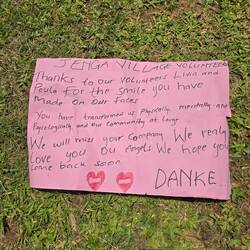 JENGA VILLAGE VOLUNTEERS
Thanks to our volunteers Livia and
Paula for the smile you have
made on our faces
You have transformed us Physically, mentally and
Psycologically and our community at large
We will miss your Company We realy
love you Our Angels We hope you
come back soon
DANKE